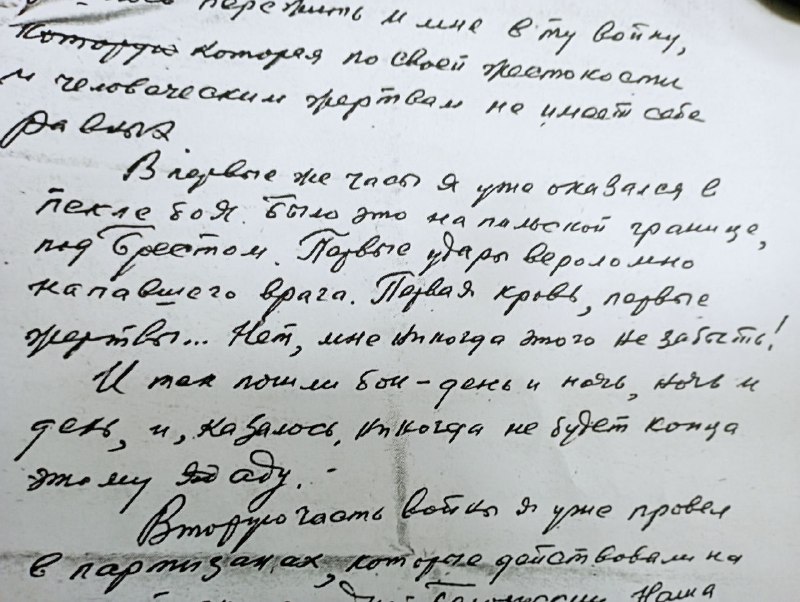 пережить и мне в ту войну,
которую которая по своей жестокости
и человеческим жертвам не имеет себе
равных
В первые же часы я уже оказался в
пекле боя. Было это на польской границе,
под Брестом. Первые удары вероломно
напавшего врага. Первая кровь, первые
жертвы... Нет, мне никогда этого не забыть!
И так пошли бои - день и ночь, ночь и
день, и, казалось, никогда не будет конца
этому аду.
Вторую часть войны я уже провел
в партизанах, которые действовали на
Наша